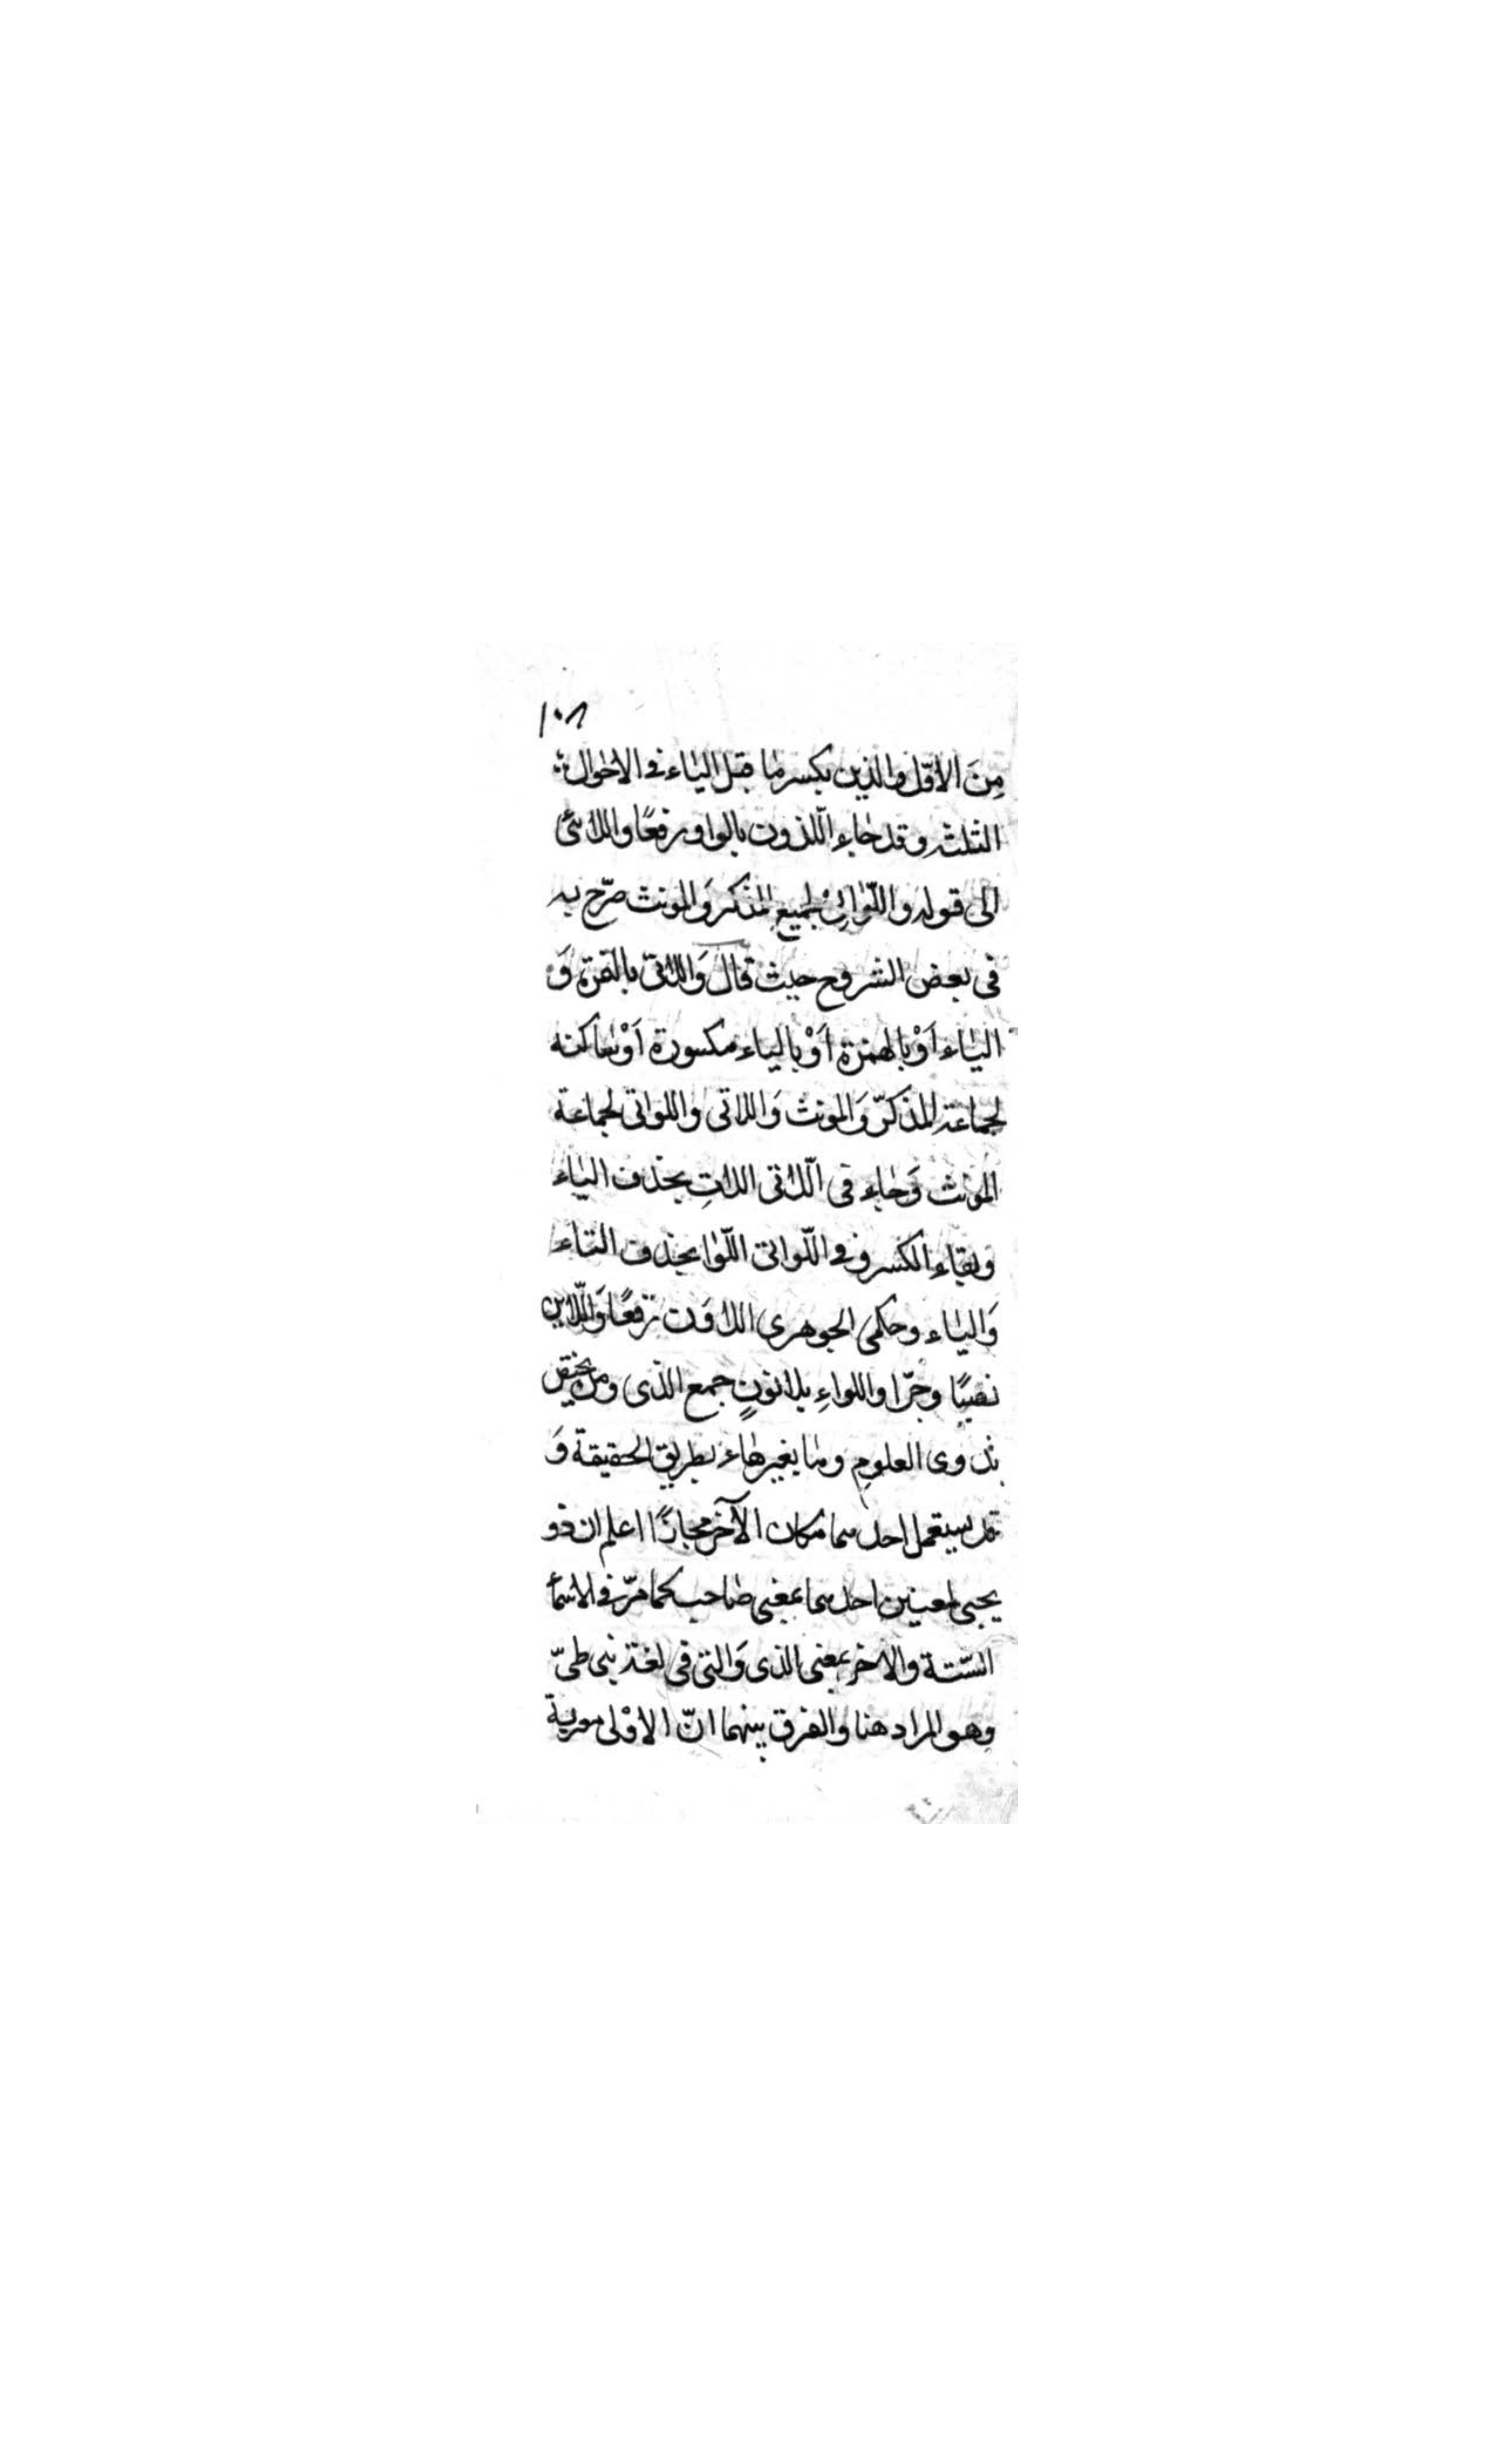 ١٠٨
مِنَ الاوّل والذين بكسر ما قبل الياء في الاحوال
الثلثه وقد جاء الّلذون بالواو رفعًا واللائى
الى قوله واللّوائى لجميعِ المذكر وَالمونث صرّح به
فى بعض الشروح حيث قال وَاللائى بالهمزة وَ
الياء اَوْ بالهمزة اَوْ بالياء مكسورة اَوْ ساكنه
لجماعة المذكّر وَالمونث وَاللاتى واللواتى لجماعة
المونث وَجاء فى الّلاتى اللاتِ بحذف الياء
وبقاء الكسر وفي اللّواتى اللّوا بحذف التاء
وَالياء وحكى الجوهرى اللاوَن رفعًا وَاللّائين
نصبًا وجرّا واللواءِ بلا نونٍ جمع الذى ومن يختص
بذوى العلومِ وما بغيرها بطريق الحقيقة وَ
قد يستعمل احدهما مكان الآخر مجازًا اعلم ان ذو
يجيى لمعنيين احدهما بمعنى صاحب كما مرّ في الاسمأ
الستّة والاخر بمعنى الذى وَالتى فى لغة بنى طىّ
وهو المراد هنا والفرق بينهما انّ الاوْلى معربة